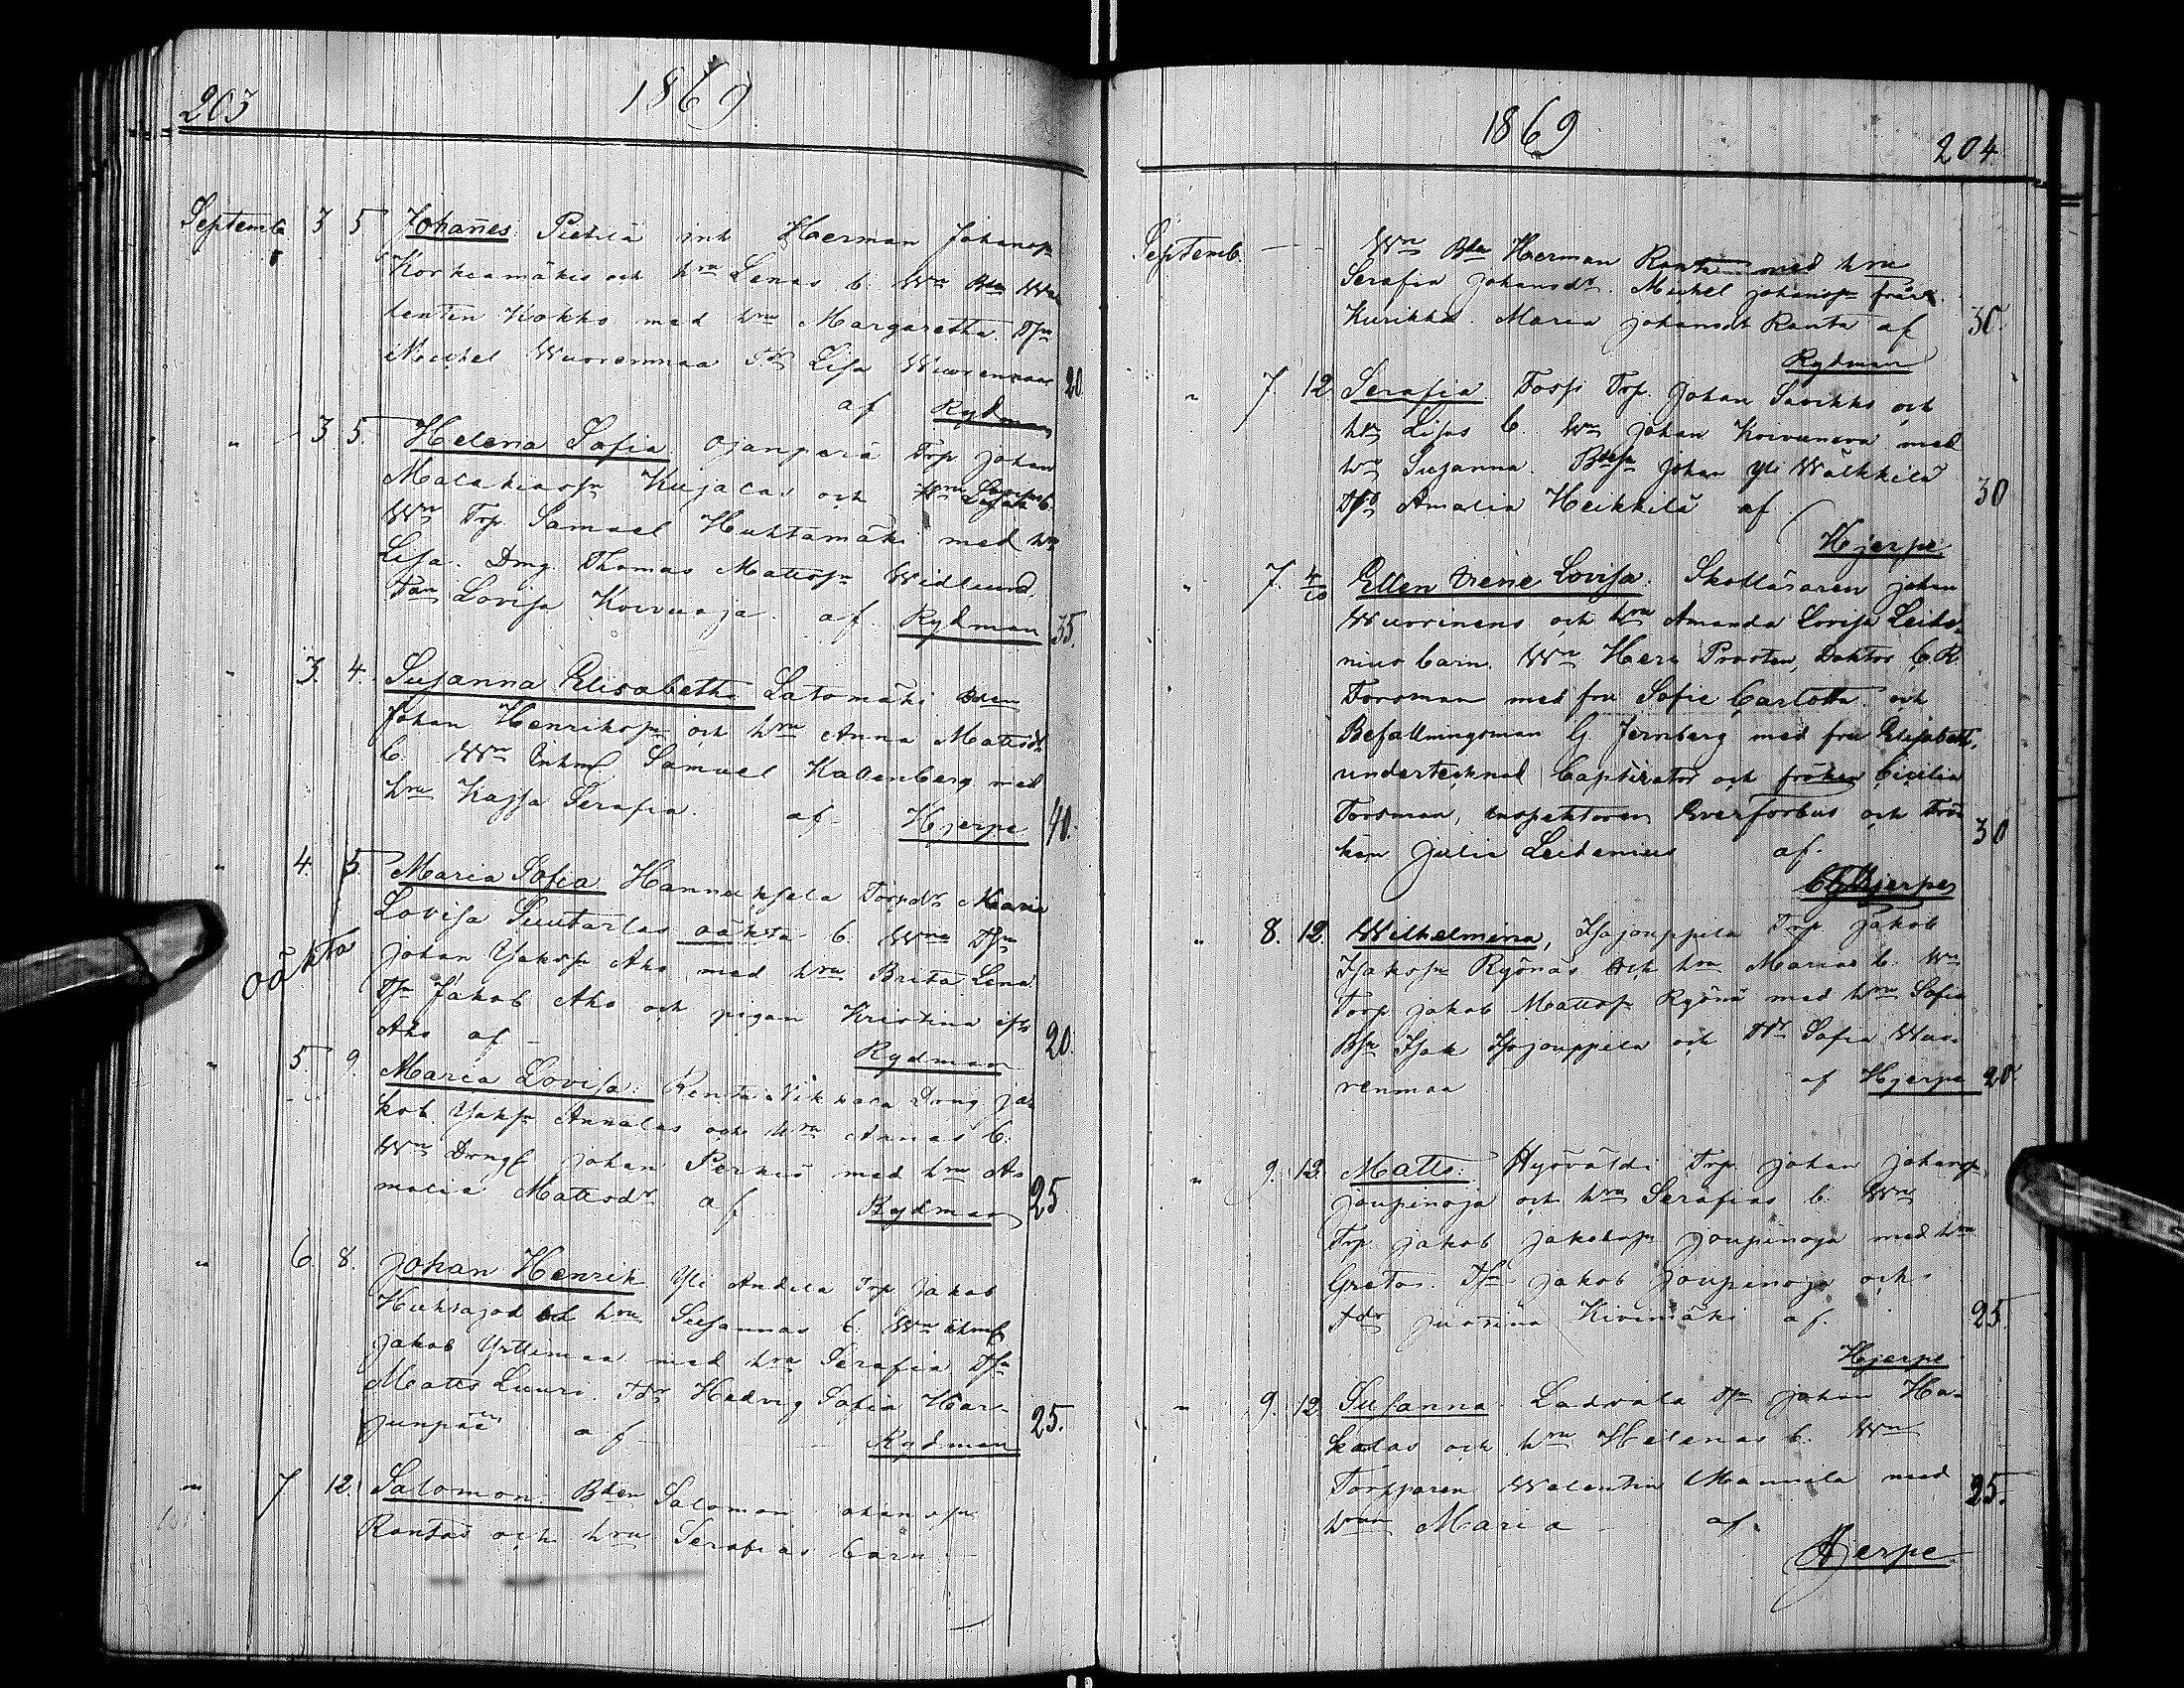 203
1869
Septemb 3 5 Johañes Pietilä inh Herman Johansn
Korkiamäkis och hru Lenas b. Wn Bdn Wa
lentin Kokko med hru Margaretha. Dsn
Michel Wuorenmaa Tdr Lisa Wuorenmaa 20
af Rydman
" 3 5. Helena Sofia Ojanperä Trp Johan
Malakiassn Kujalas och hru b.
Wn Trp. Samuel Huhtamäki med hru
Lisa. Dmg Thomas Mattssn Widlund,
Lovisa Koivuoja. af. Rydman 35.
" 3. 4. Susanna Elisabetha Latomäki Bden
Johan Henrikssn och hru Anna Mattsdr
b. Wn Inhns Samuel Kallenberg med
hru Kajsa Serafia. af Hjerpe 40.
" 4. 5. Maria Sofia Hannuksela Torpdr Maria
Lovisa Suutarlas oäkta b. Wne Dsn
oäkta
Johan Isakssn Aho med hru Brita Lena.
Dsn Jakob Aho och pigan Kristina
Aho af - Rydman 20.
" 5. 9. Maria Lovisa. Renta Nikkola Dreng Ja
kob Isakssn Annalas och hru Annas b.
Wn Drngs Johan Perkiö med hru A
malia Mattsdr af Rydman 25
" 6. 8. Johan Henrik Yli Andila Trp Jakob
och hru Susannas b. Wn
Jakob Yttimaa med hru Serafia Dsn
Matts Luuri. Tdr Hedvig Sofia Har-
junpää af Rydman 25.
" 7 12. Salomon. Bden Salomon Johanssn
Rantas och hru Serafias barn
1869
204
Septemb. - - Wn Bdn Herman Ranta med hru
Serafia Johansdr. Michel Johanssn från
Kurikka. Maria Johansdr Ranta af 30.
Rydman
" 7. 12 Serafia. Trp. Johan Savikko och
hru Lisas b. Wn Johan Koivuneva med
hru Susanna. Bdsn Johan Yli Wälkkilä
Amalia Heikkilä af 30
Hjerpe
" 7. 4/10 Ellen Irene Lovisa. Skolläraren Johan
Wuorinens och hru Amanda Lovisa Leide-
nius barn. Wn Herr Prosten, Doktor C. R.
Forsman med fru Sofie Carlotta och
Befallningsman G Jernberg med fru Elisabeth,
undertecknad Captitator och fröken Cicilia
Forsman, inspektoren Everforbus och Frö-
ken Julie Leidenius af. 30
Hjerpe
" 8. 12. Wilhelmina, Isojouppila Trp. Jakob
Isakssn Ryönäs och hru Marias b. Wn
Torp Jakob Mattssn Ryönä med hru Sofia
Bsn Isak Isojouppila och Tdr Sofia Wuo-
renmaa af Hjerpe 20.
" 9. 12. Matts: Hyövälti Trp Johan Johanssn
Joupinoja och hru Serafias b. Wn
Trp. Jakob Jakobssn Joupinoja med hru
Greta. Dsn Jakob Joupinoja och
Tdr Justina Kivimäki af. 25.
Hjerpe
" 9. 12. Susanna. Ladvala Dsn Johan Ha-
kalas och hru Helenas b. Wn
Torpparen Walentin Mannila med
hrun Maria - af. 25.
Hjerpe